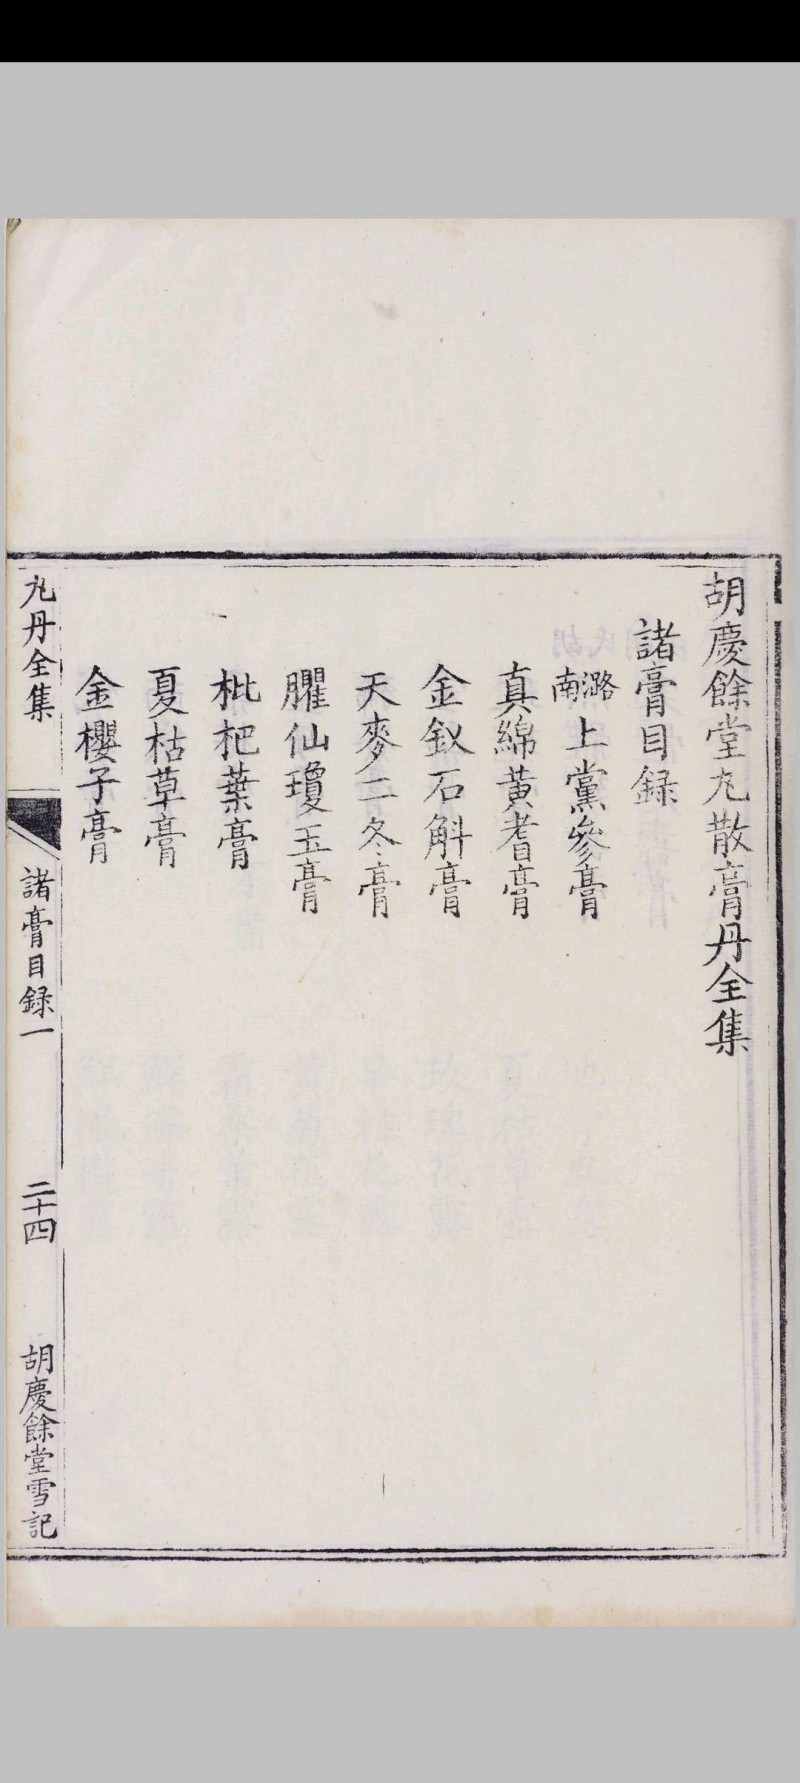 胡慶餘堂丸散膏丹全集
諸膏目録
潞南上黨參膏
真綿黃耆膏
金釵石斛膏
天麥二冬膏
臞仙瓊玉膏
枇杷葉膏
夏枯草膏
金櫻子膏
丸丹全集
諸膏目録一
二十四
胡慶餘堂雪記